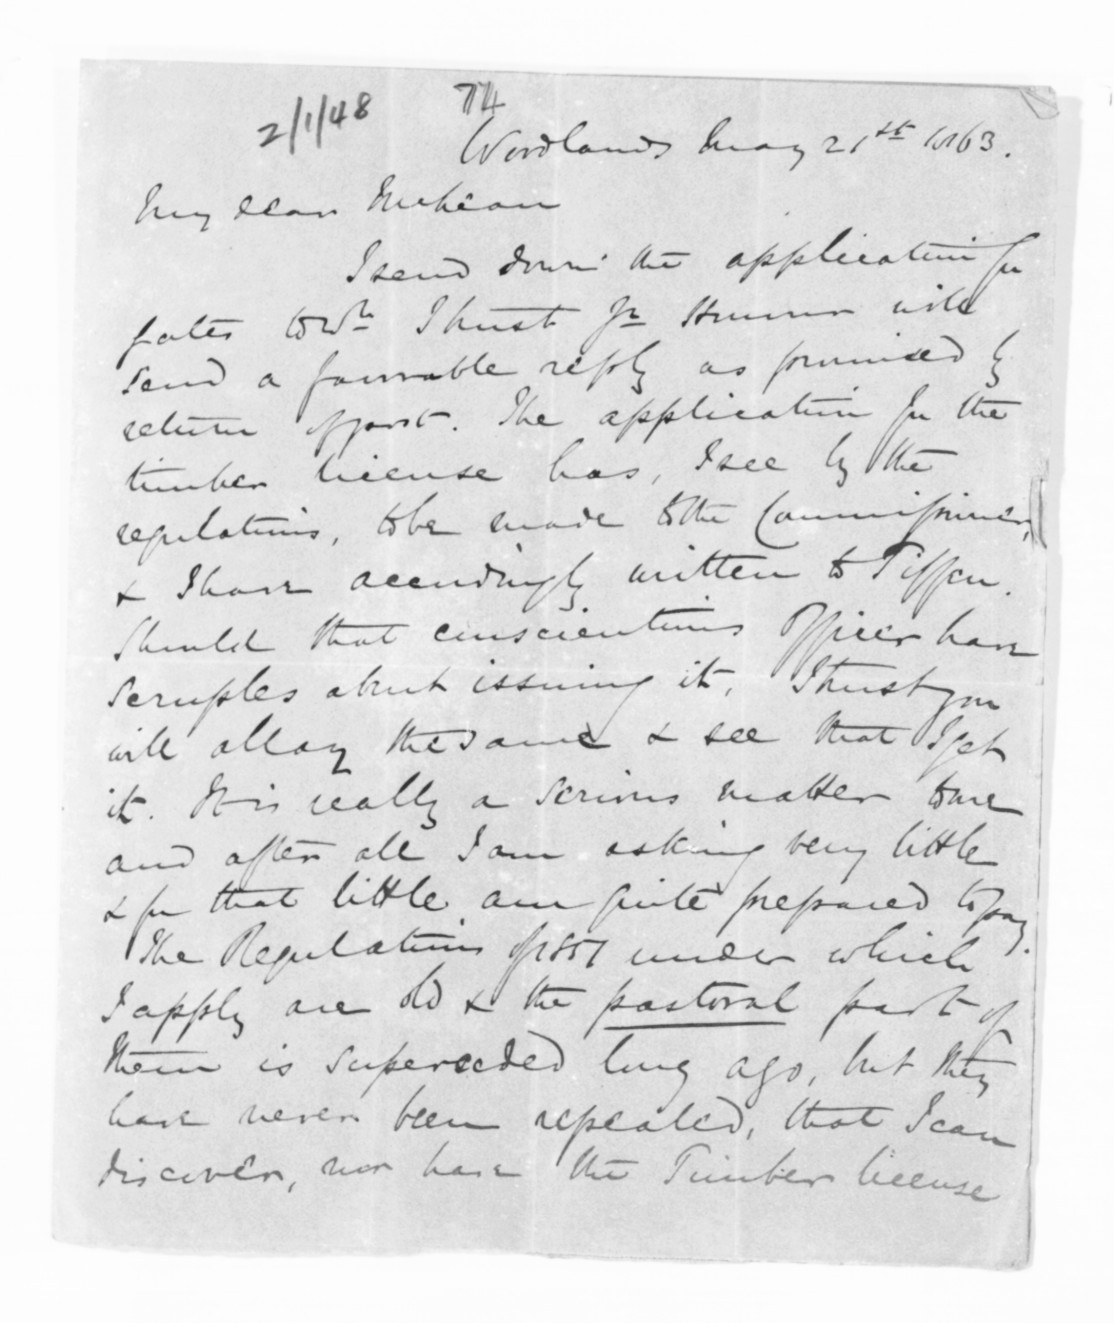 2/1/48
74
Woodlands May 21st 1863.
My dear McLean
I send down the application for
gates to wh I trust Yr Honour will
send a favorable reply as promised by
return of post. The application for the
timber license has, I see by the
regulations, to be made to the Commissioner,
& I have accordingly written to Tiffen.
Should that conscientious Officer have
scruples about issuing it, I trust you
will allay the same & see that I get
it. It is really a serious matter to me
and after all I am asking very little
& for that little am quite prepared to pay.
The Regulations of 1851 under which
I apply are old & the pastoral part of
them is superseded long ago, but they
have never been repealed, that I can
discover, nor have the Timber license